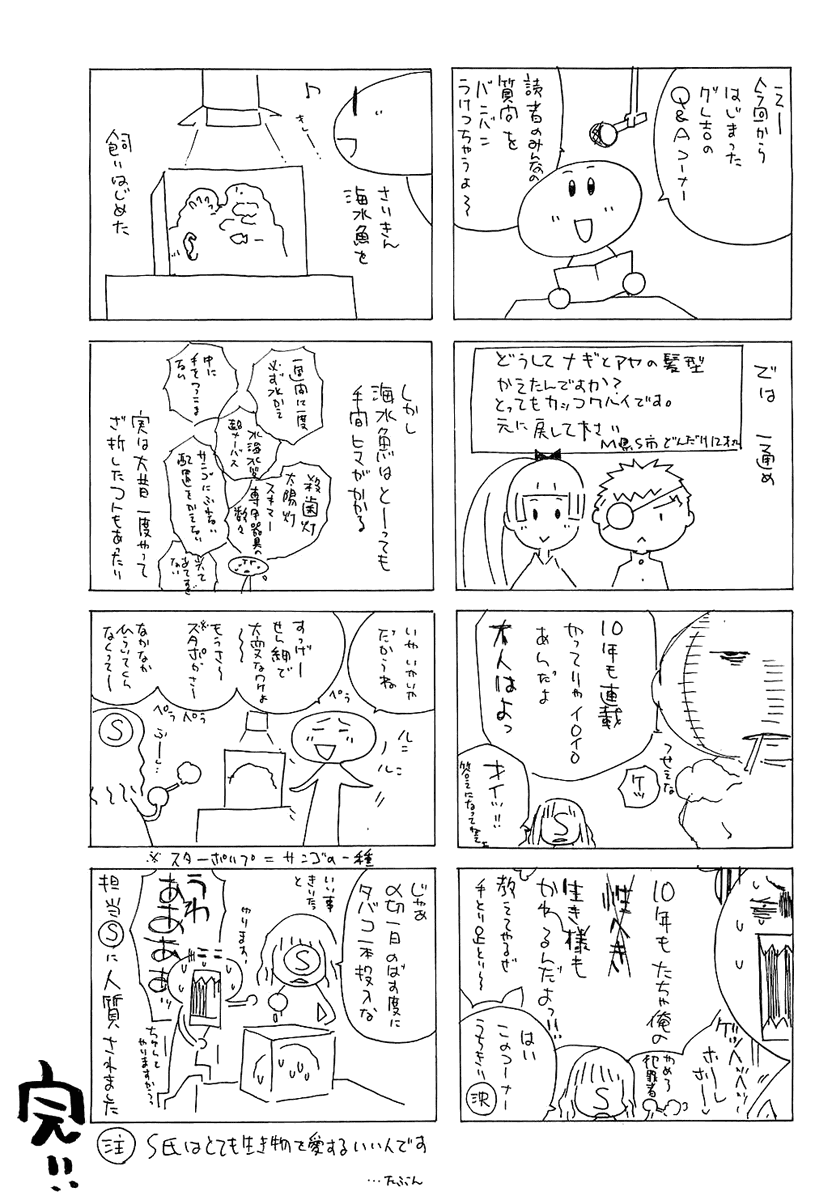 えー
今回から
はじまった
グレ吉の
Q&Aコーナー
読者のみんなの
質問を
バンバン
うけつちゃうよ～
では 一通め
どうしてナギとアヤの髪型
かえたんですか?
とってもカッコワバイです。
元に戻して下さい
M県S市どんだけ
10年も連載
やってりゃイロイロ
あんだよ
大人はよっ
つせえな
ケッ
オイッ!!
答えになってねえ
S
10年もたちゃ俺の
性へき
生き様も
かわるんだよっ!!
教えてやるぜ
手とり足とりー
ゲッヘヘヘッ
ホホーレー
やめろ
犯罪者
はい
このコーナー
うちきりぃ
決
S
さいきん
海水魚を
飼いはじめた
♪
しかし
海水魚はとーっても
手間ヒマがかかる
一週間に一度
必ず水かえ
中に
手をつっこま
ない
水海水質
超ナーバス
殺菌灯
太陽灯
スキマー
専用器具の
数々
サンゴにふれない
配置をかえない
実は大昔一度やって
ざ折したコトもあったり
いやいやいや
だからね
すっげー
せん細で
大変なワケよ
～～
もうさ～
スタポがさー
なかなか
ひらいてくん
なくってー
ぺら
ぺら
ぺら
ルン
ルン
ふーし…
S
※スターポリプ=サンゴの一種
じゃあ
〆切一日のばす度に
タバコ一本投入な
いい事
きいたっ
と
S
やります!
うわ
あああああ
ちゃんと
やりますから
担当Ⓢに人質されました
注 S氏はとても生き物を愛するいい人です
…たぶん
完!!